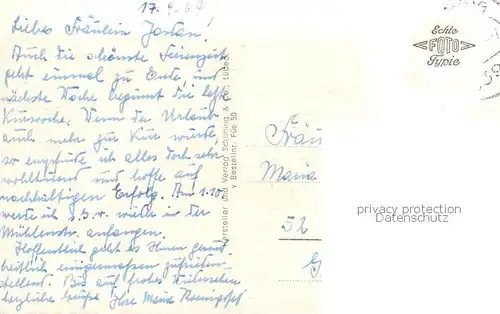 17. 9. 67
Liebes Fräulein Jordan!
Auch die schönste Ferienzeit
geht einmal zu Ende, und
nächste Woche beginnt die letzte
Kurwoche. Wenn der Urlaub
auch mehr zur Kur wurde
so empfinde ich alles doch sehr
wohltuend und hoffe auf
nachhaltigen Erfolg. Am 1.10.
werde ich wieder in der
Mühlenstr. anfangen.
Hoffentlich geht es Ihnen gesund-
heitlich einigermassen zufrieden-
stellend. Bis auf frohes Wiedersehen
herzliche Grüße Ihre Maria
Hersteller und Verlag Schöning & Co., Lübeck
Bestellnr. Füs 50
Echte
FOTO
Typie
Fräu
Maria
52
privacy protection
Datenschutz